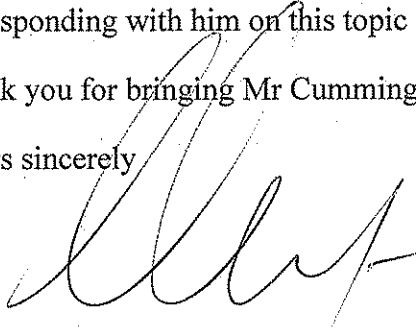 sponding with him on this topic
k you for bringing Mr Cumming
s sincerely